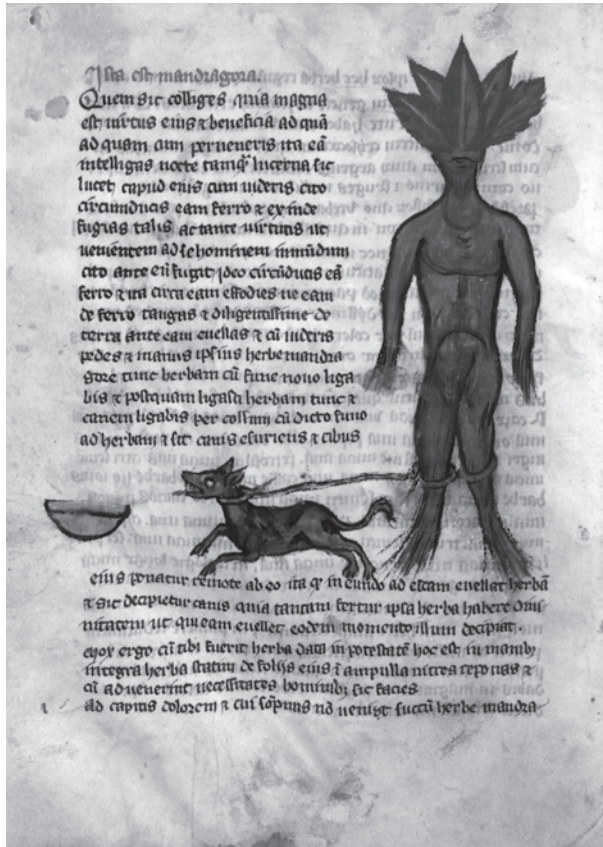 Ista est mandragora.
Quem sic colliges quia magna
est virtus eius ⁊ beneficia ad quā
ad quam cum perveneris ita eā
intelligas nocte tamqͣ lucerna sic
lucet capud eius cum videris cito
circumducas eam ferro ⁊ exinde
fugias talis ac tante virtutis ut
venientem ad se hominem inmundum
cito ante eū fugit ideo circūducas eā
ferro ⁊ ita circa eam effodies ne eam
de ferro tangas ⁊ diligentissime de
terra ante eam evellas ⁊ cū videris
pedes ⁊ manus ipsius herbe mandra
gore tunc herbam cū fune novo liga
bis ⁊ postquam ligasti herbam tunc ⁊
canem ligabis per collum cū dicto fune
ad herbam ⁊ sit canis esuriens ⁊ cibus
eius ponatur remote ab eo ita ꝙ in eundo ad escam evellat herbā
⁊ sic decipietur canis quia tantam fertur ipsa herba habere divi
nitatem ut qui eam evellet eodem momento illum decipiat.
mox ergo cū tibi fuerit herba data in potestatē hoc est in manibꝫ
integra herba statim de folijs eius ī ampulla vitrea reponas ⁊
cū advenerint necessitates hominibꝫ sic facies
ad capitis dolorem ⁊ cui sōpnus nō venit succū herbe mandra